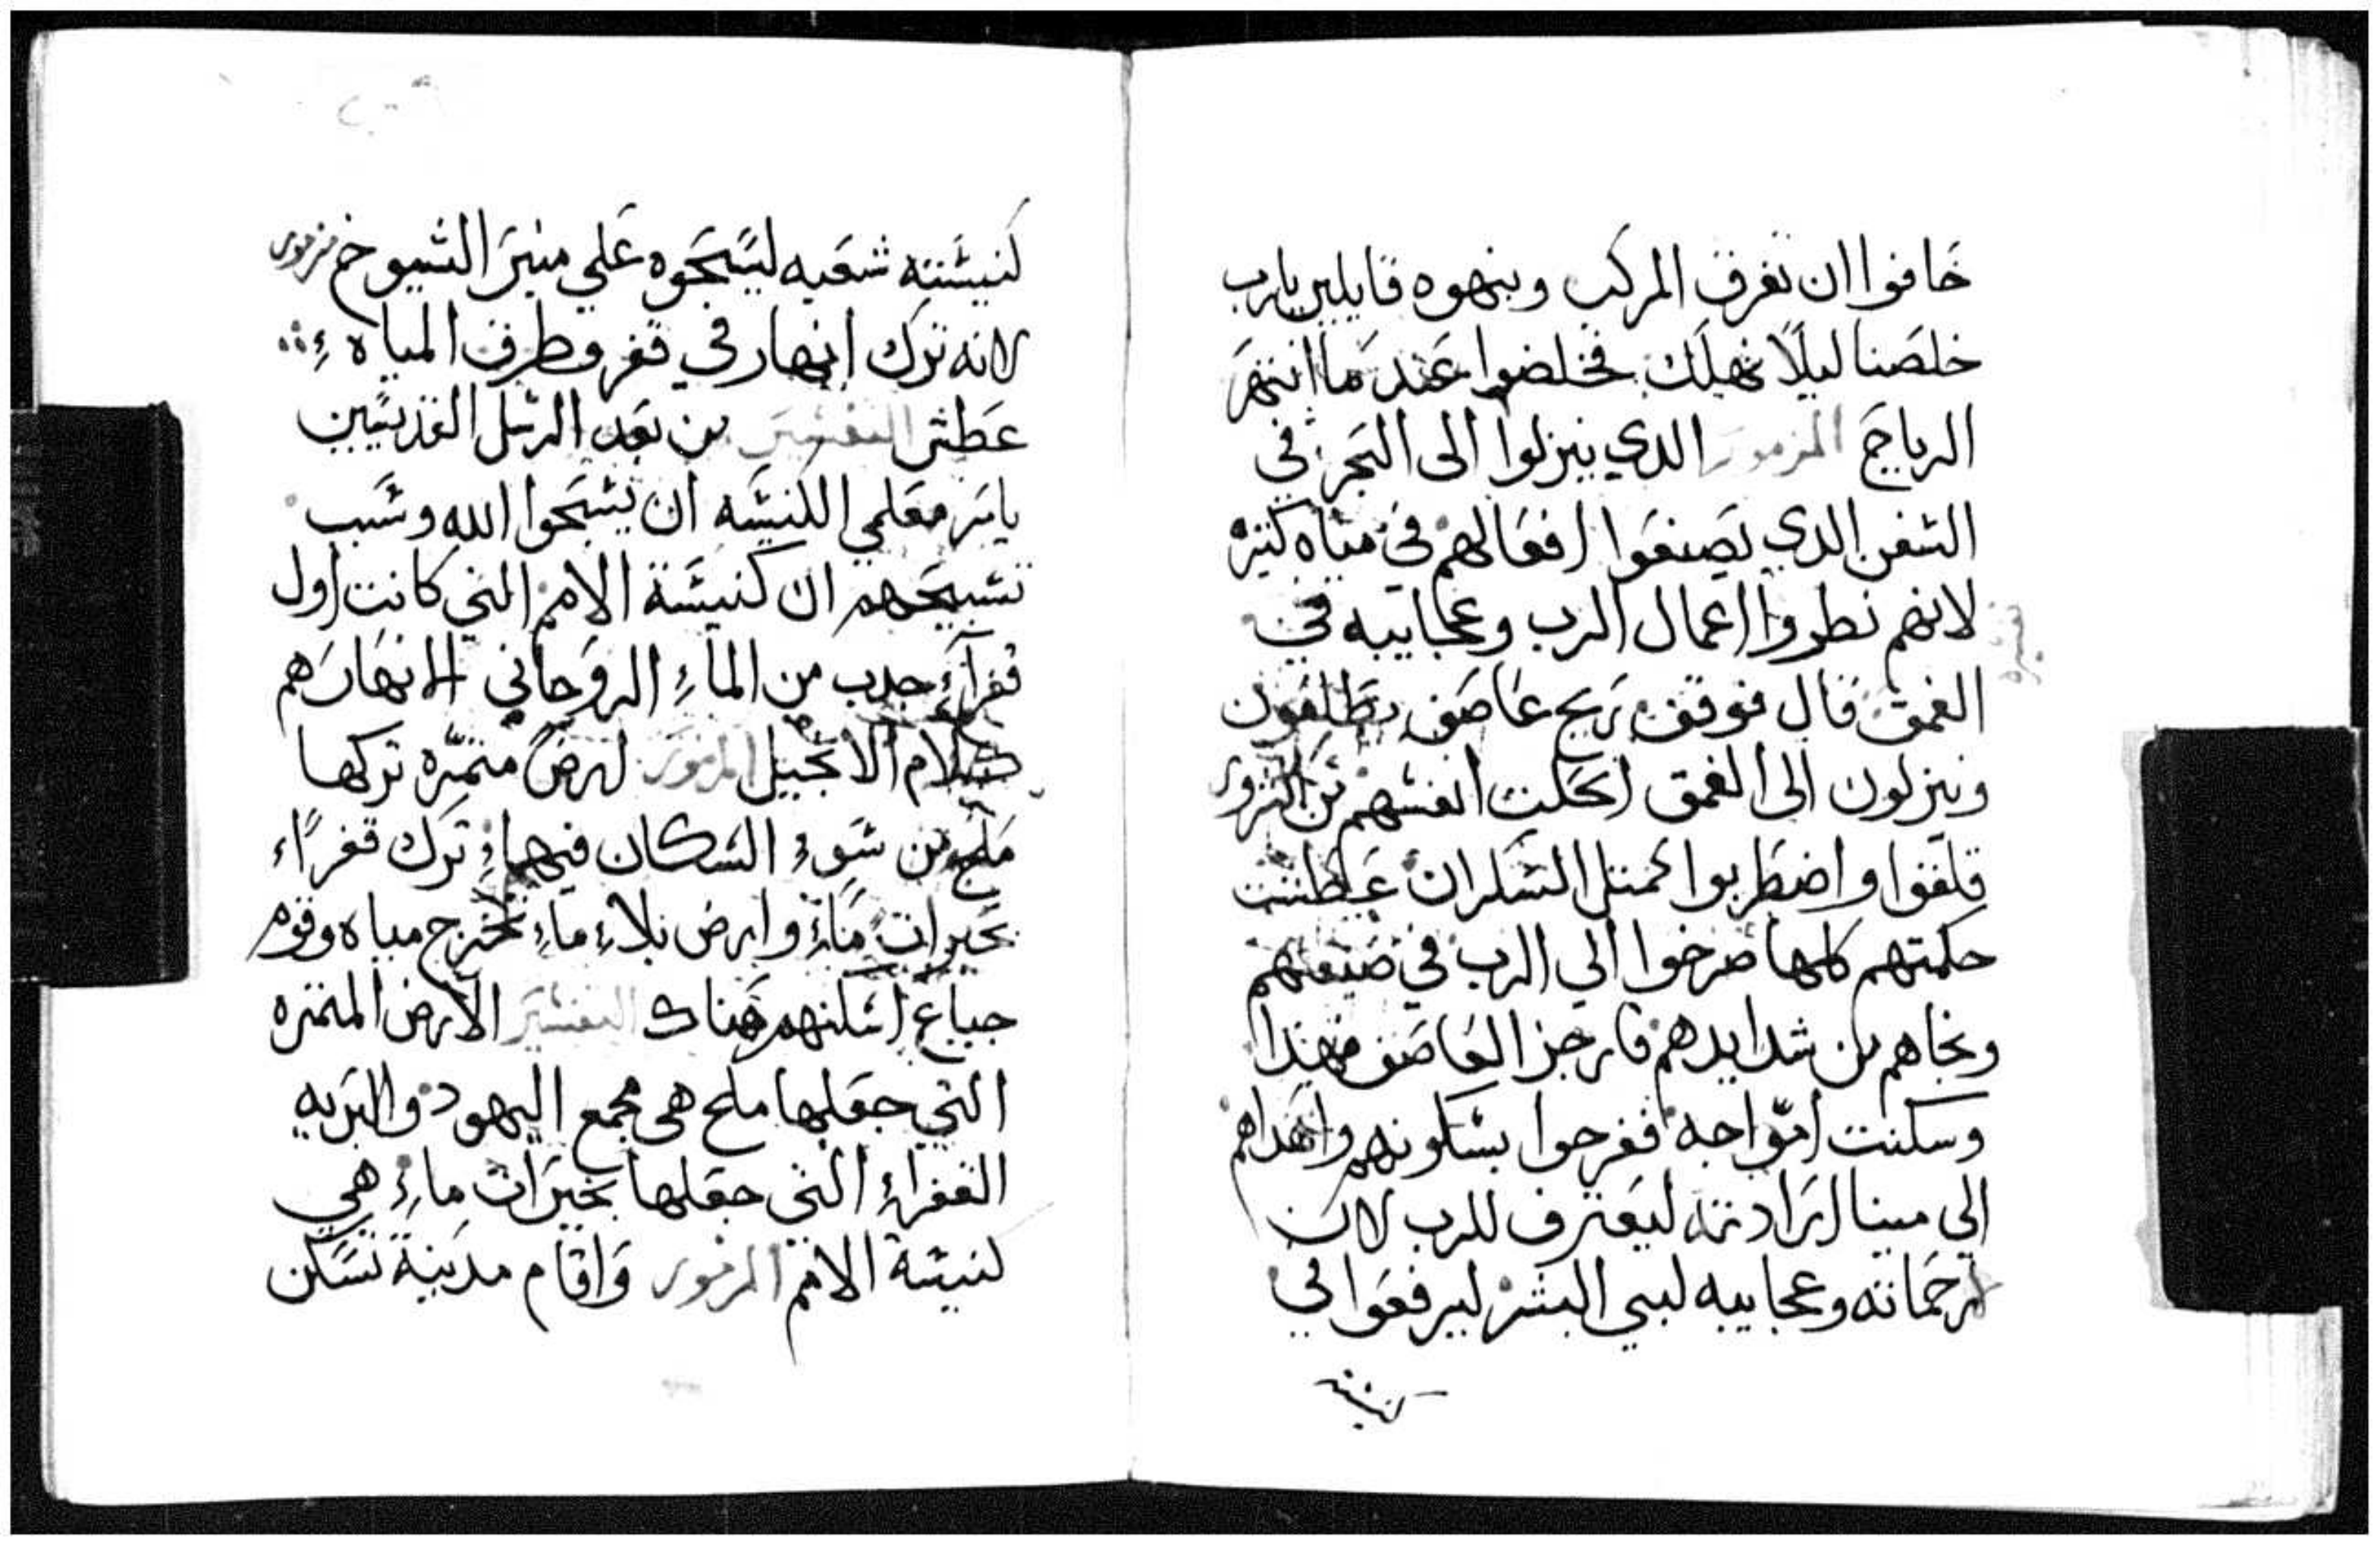 خافوا ان تغرق المركب ونبهوه قايلين يارب
خلصنا ليلًا نهلك فخلصوا عندما انتهر
الرياح المزمور الدي ينزلوا الى البحر في
السفن الدي يصنعوا افعالهم في مياه كتيره
لانهم نطروا اعمال الرب وعجايبه في
الغمق قال فوقف ريح عاصف يطلعون
وينزلون الى الغمق احلت انفسهم من الشرور
قلقوا واضطربوا كمتل السكران غطست
حكمتهم كلها صرخوا الي الرب في ضيقتهم
ونجاهم من شدايدهم فارجز العاصف فهدا
وسكنت امواجه ففرحوا بسكونهم واهداهم
الي مينا ارادته ليعترف للرب لان
رحماته وعجايبه لبني البشر ليرفعوا في
كنيسته
كنيسته شعبه ليسبحوه علي منبر الشيوخ مزمور
لانه ترك انهار في قفر وطرق المياه
عطش التفسير من بعد الرسل القديسين
يامر معلمي الكنيسه ان يسبحوا الله وسبب
تسبيحهم ان كنيسة الامم التي كانت اول
قفرآء جدب من الماء الروحاني الانهار هم
كلام الانجيل المزمور ارض متمره تركها
ملح من سوء السكان فيها ترك قفرًاء
بحيرات ماء وارض بلاء ماء تخرج مياه وقوم
جياع اسكنهم هناك التفسير الارض المتمره
التي جعلها ملح هى مجمع اليهود والبريه
القفراء التي جعلها بحيرات ماء هي
كنيسة الامم المزمور واقام مدينة تسكن